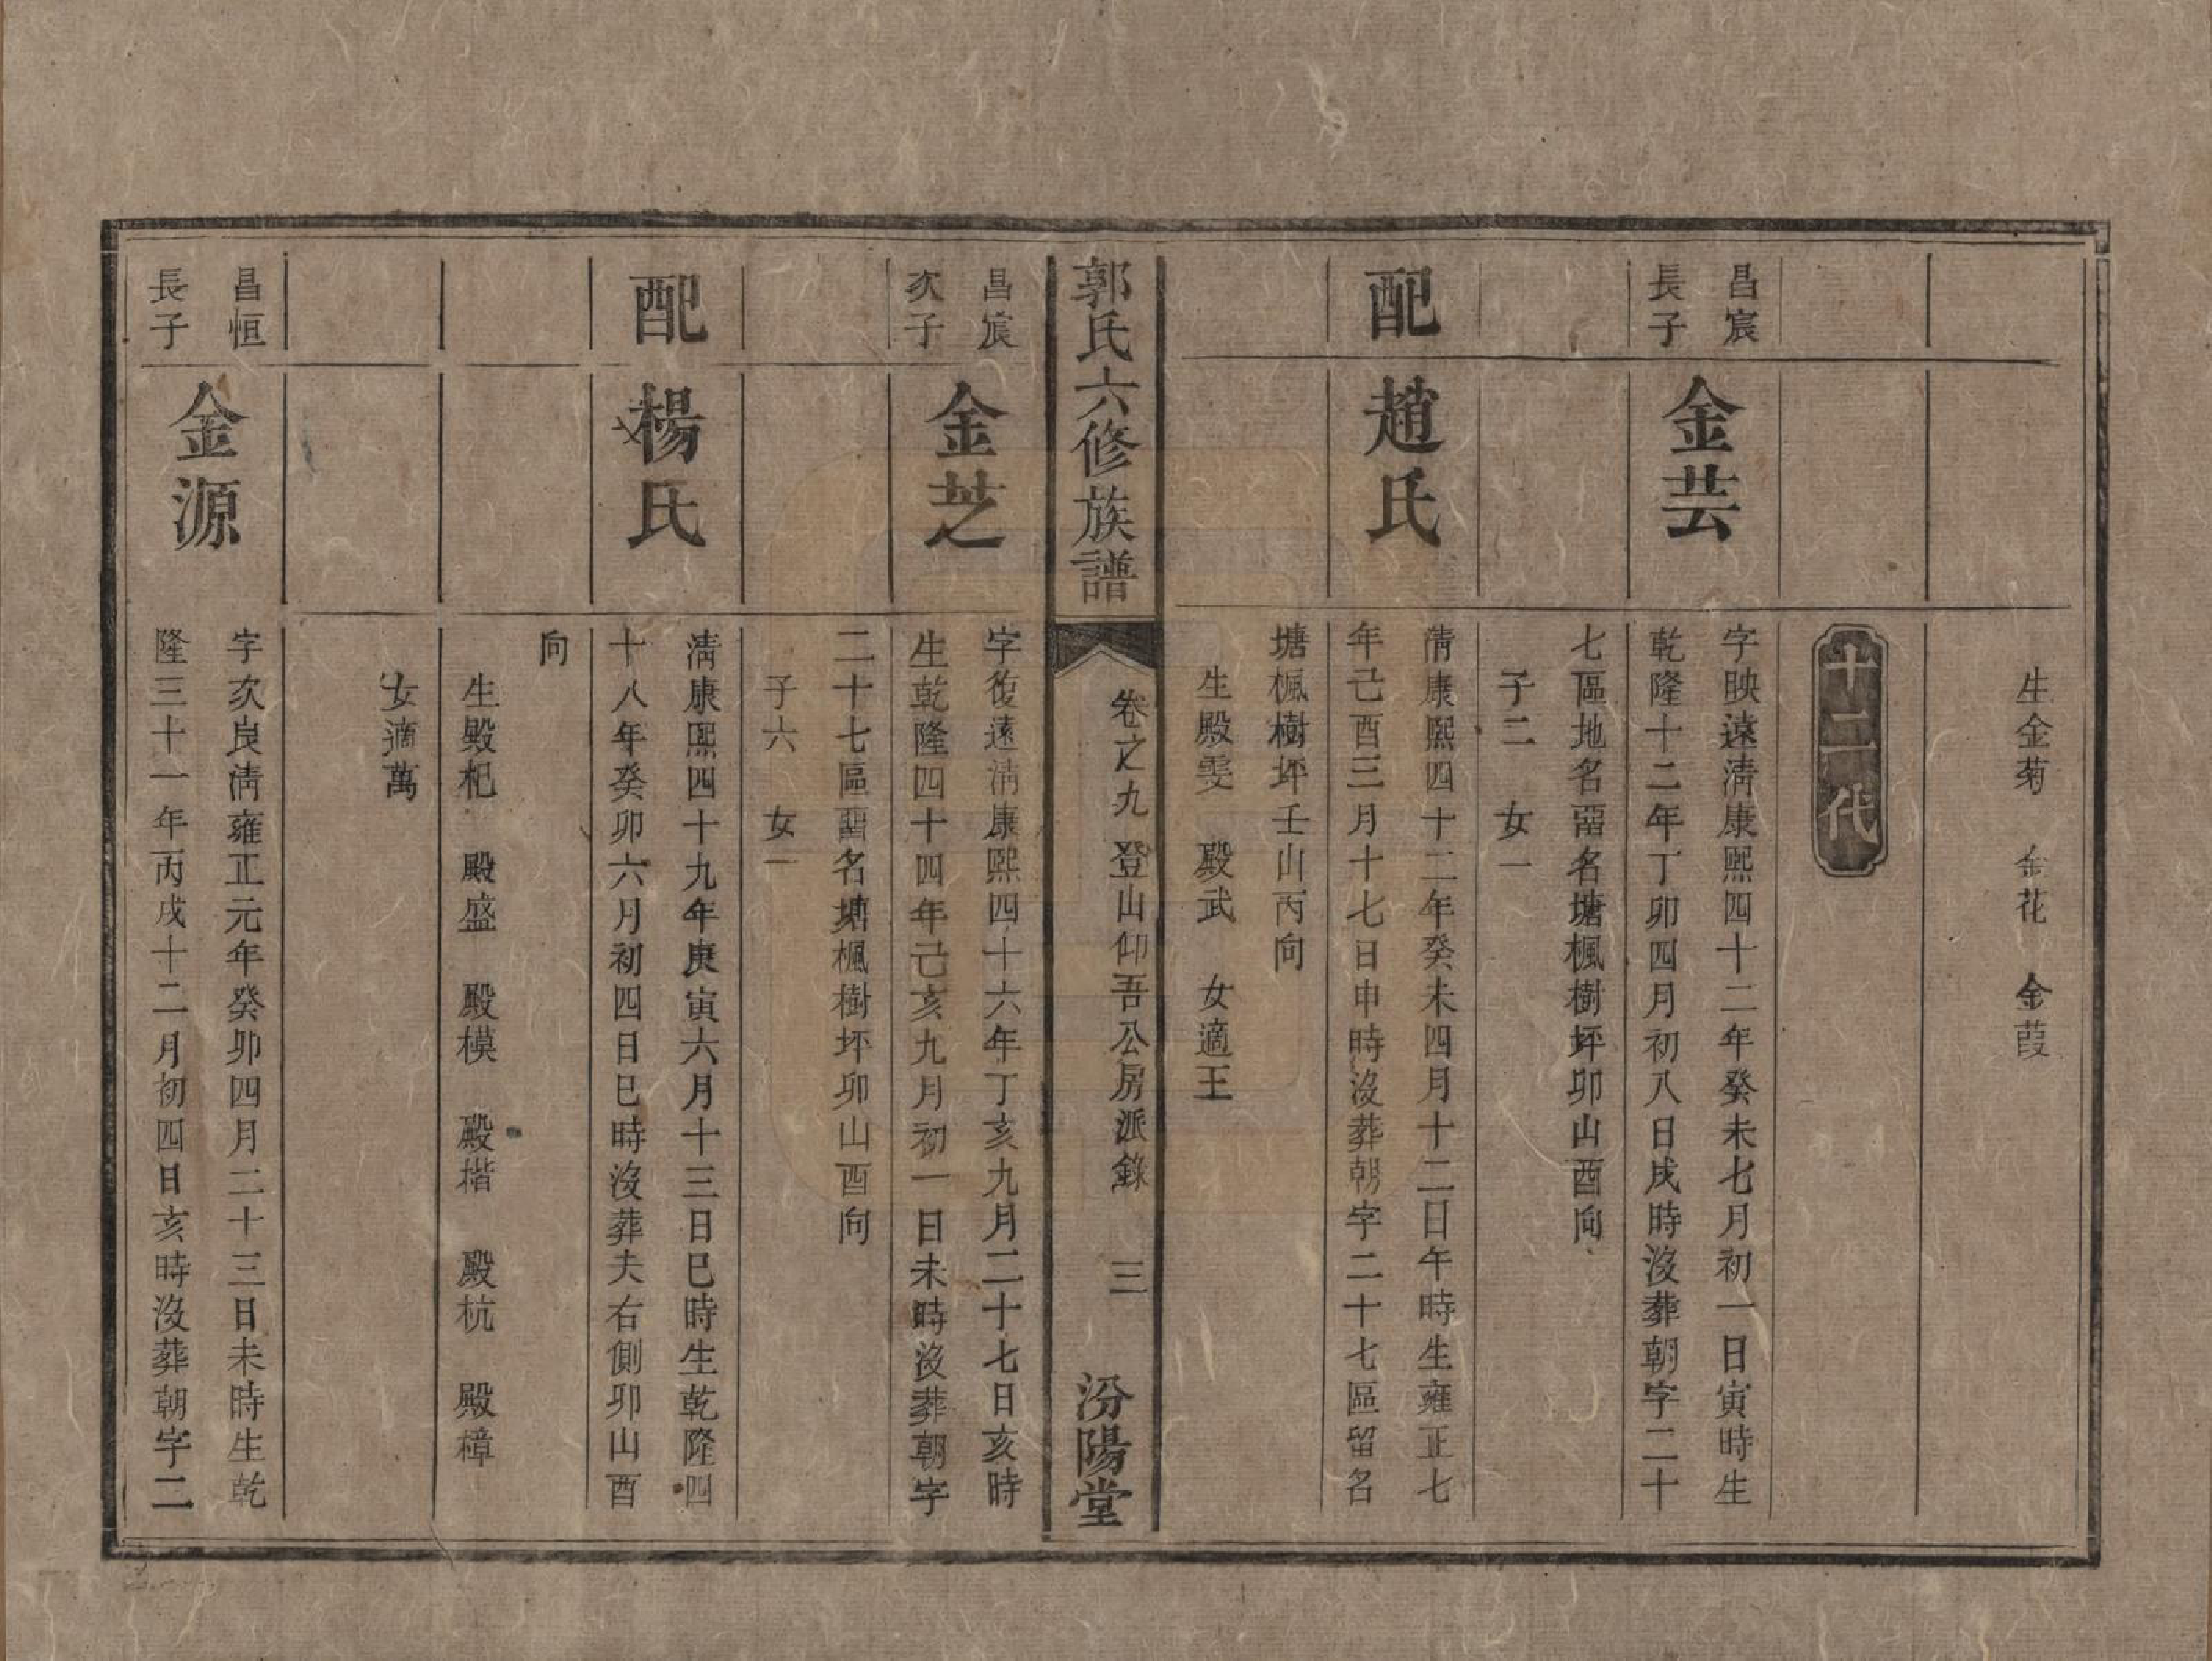 生金菊　金花　金葭
十二代
昌宸
長子
金芸
字映遠淸康熙四十二年癸未七月初一日寅時生
乾隆十二年丁卯四月初八日戌時沒葬朝字二十
七區地名罶名塘楓樹坪卯山酉向
子二　女一
配
趙氏
淸康熙四十二年癸未四月十二日午時生雍正七
年己酉三月十七日申時沒葬朝字二十七區留名
塘楓樹坪壬山丙向
生殿雯　殿武　女適王
郭氏六修族譜
卷之九　登山仰吾公房派錄　三
汾陽堂
昌宸
次子
金芝
字復遠淸康熙四十六年丁亥九月二十七日亥時
生乾隆四十四年己亥九月初一日未時沒葬朝字
二十七區罶名塘楓樹坪卯山酉向
子六　女一
配
楊氏
淸康熙四十九年庚寅六月十三日巳時生乾隆四
十八年癸卯六月初四日巳時沒葬夫右側卯山酉
向
生殿杞　殿盛　殿模　殿楷　殿杭　殿樟
女適萬
昌恒
長子
金源
字次良淸雍正元年癸卯四月二十三日未時生乾
隆三十一年丙戌十二月初四日亥時沒葬朝字二